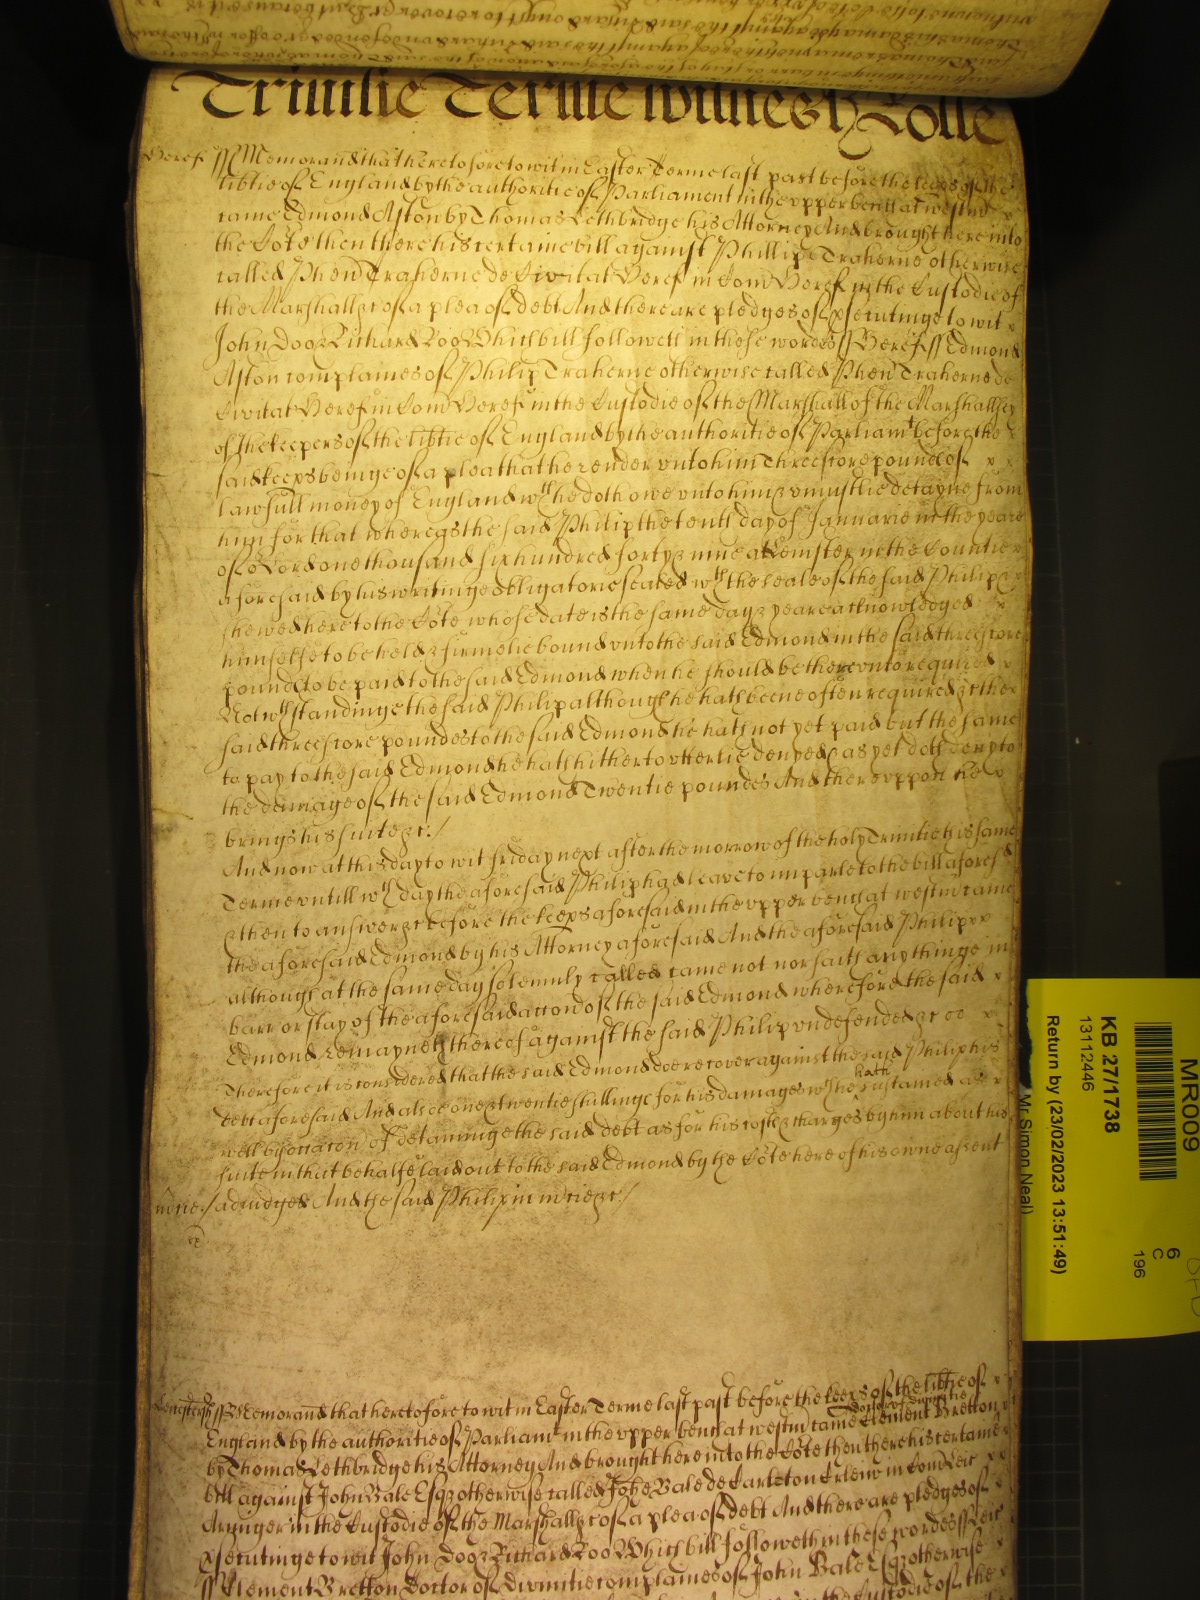 Trinitie Terme witnes H Rolle
Heref ss Memorand that heretofore to wit in Easter Terme last past before the keeps of the
libtie of England by the authoritie of Parliament in the upper bench at westm
came Edmond Aston by Thomas Lethbridge his Attorney And brought here into
the Cote then there his certaine bill against Phillip Traherne otherwise
called Phen Traherne de Civitat Heref in Com Heref in the Custodie of
the Marshall &c of a plea of debt And there are pledges of psecutinge to wit
John Doo & Richard Roo Which bill followeth in these wordes ss Heref ss Edmond
Aston complaines of Philip Traherne otherwise called Phen Traherne de
Civitat Heref in Com Heref in the Custodie of the Marshall of the Marshallsey
of the keepers of the libtie of England by the authoritie of Parliamt before the
said keeps beinge of a plea that he render unto him Threescore pounds of
lawfull money of England wch he doth owe unto him & uniustlie detayne from
him for that whereas the said Philip the tenth day of Januarie in the yeare
of o Lord one thousand six hundred forty & nine at Lemster in the Countie
aforesaid by his writinge obligatorie sealed wth the seale of the said Philip &
shewed here to the Cote whose date is the same day & yeare acknowledged
himselfe to be held & firmelie bound unto the said Edmond in the said threescore
pounds to be paid to the said Edmond when he should be thereunto required
Notwthstandinge the said Philip although he hath beene often required &c the
said threescore poundes to the said Edmond he hath not yet paid but the same
to pay to the said Edmond he hath hitherto utterlie denyed & as yet doth deny to
the damage of the said Edmond Twentie poundes And thereuppon he
brings his suite &c./
And now at this day to wit friday next after the morrow of the holy Trinitie this same
Terme untill wch day the aforesaid Philip had leave to imparle to the bill aforesd
& then to answer &c before the keeps aforesaid in the upper bench at westm came
the aforesaid Edmond by his Attorney aforesaid And the aforesaid Philip
although at the same day solemnly called came not nor saith any thinge in
barr or stay of the aforesaid accon of the said Edmond wherefore the said
Edmond remayneth thereof against the said Philip undefended &c
Therefore it is considered that the said Edmond doe recover against the said Philip his
debt aforesaid And alsoe one & twentie shillings for his damages wch he hath sustained as
well by occacon of detayninge the said debt as for his costs & charges by him about his
suite in that behalfe laid out to the said Edmond by the Cote here of his owne assent
mcie./ adiudged And the said Philip in mcie &c./
Leicestersh ss Memorand that heretofore to wit in Easter Terme last past before the keeps of the libtie of
England by the authoritie of Parliamt in the upper bench at westm came Clement Bretton doctor of divinitie
by Thomas Lethbridge his Attorney And brought here into the Cote then there his certaine
bill against John Bale Esq & otherwise called John Bale de Carleton Curlewe in Com Leic
Armiger in the Custodie of the Marshall &c of a plea of debt And there are pledges of
psecutinge to wit John Doo & Richard Roo Which bill followeth in these wordes ss Leic
ss Clement Bretton Doctor of divinitie complaines of John Bale Esq & otherwise
MR009
KB 27/1738
13112446
Return by (23/02/2023 13:51:49)
Mr Simon Neal)
6
C
196